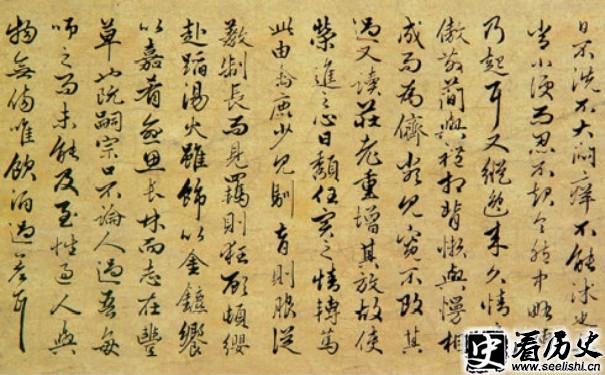 日不洗不大悶癢不能沐也
當小便而忍不起令胞中略轉
乃起耳又縱逸来久情
傲散簡與禮相背懶與慢相
成而為儕類見寬不攻其
過又讀莊老重增其放故使
榮進之心日頹任實之情轉篤
此由禽鹿少見馴育則服從
教制長而見羈則狂顧頓纓
赴蹈湯火雖飾以金鑣饗
以嘉肴愈思長林而志在豐
草也阮嗣宗口不論人過吾每
師之而未能及至性過人與
物無傷唯飲酒過差耳
史看历史
www.seelishi.cn